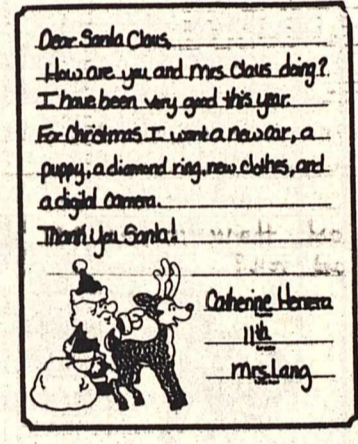 Dear Santa Claus,
How are you and Mrs. Claus doing?
I have been very good this year.
For Christmas I want a new car, a
puppy, a diamond ring, new clothes, and
a digital camera.
Thank You Santa!
Catherine Herrera
11th
Mrs. Lang